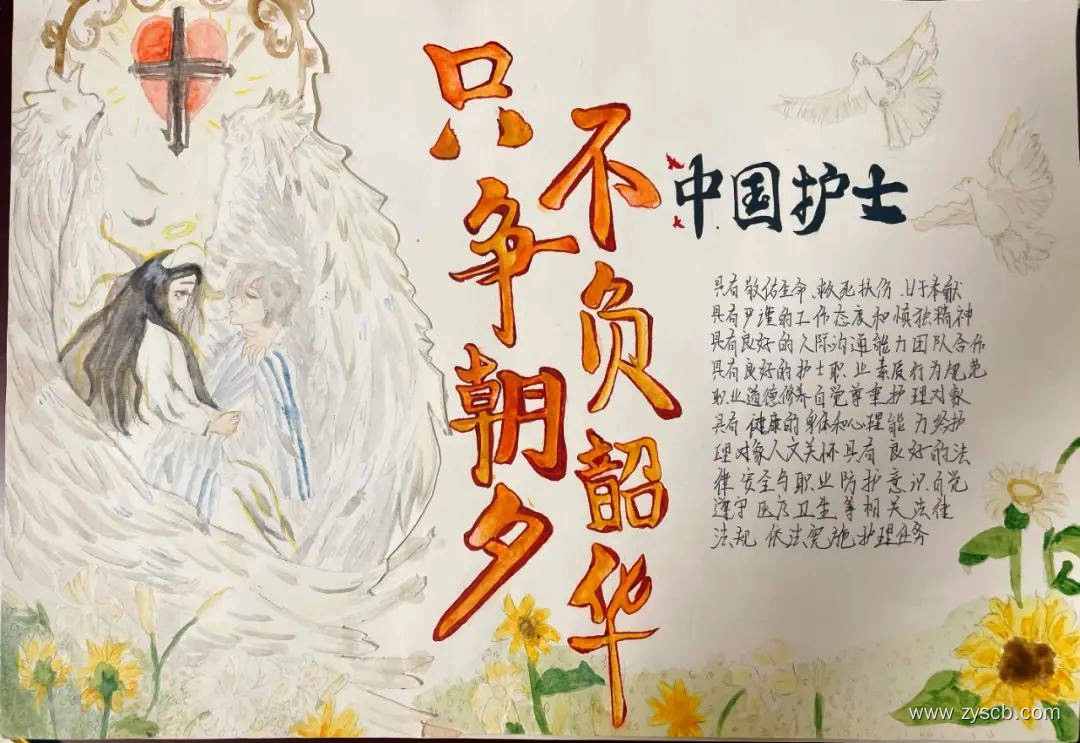 只争朝夕
不负韶华
中国护士
具有敬佑生命、救死扶伤、甘于奉献
具有严谨的工作态度和慎独精神
具有良好的人际沟通能力团队合作
具有良好的护士职业素质行为规范
职业道德修养自觉尊重护理对象
具有健康的身体和心理能力
理对象人文关怀具有良好的法
律安全与职业防护意识自觉
遵守医疗卫生等相关法律
法规 依法实施护理任务
www.zyscb.com